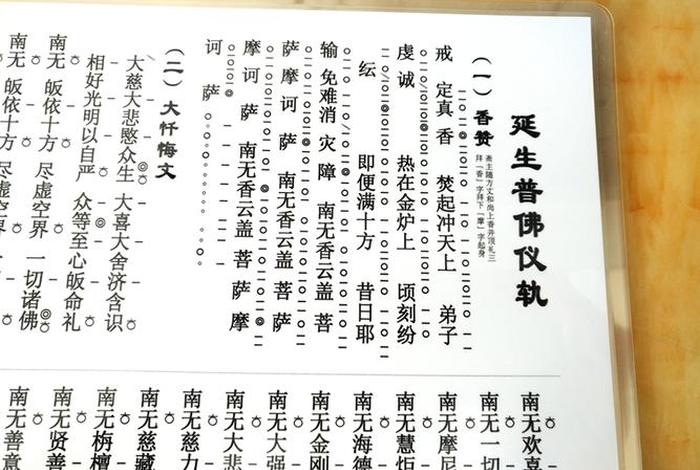 延生普佛仪轨
(一)香赞
斋主随方丈和尚上香并顶礼三
拜「香」字拜下「摩」字起身
戒 定真 香 焚起冲天上 弟子
虔 诚 热在金炉上 顷刻纷
纭 即便满十方 昔日耶
输 免难消 灾 障 南无香云盖 菩
萨 摩 诃 萨 南无香云盖 菩 萨
摩 诃 萨 南无香云盖 菩 萨 摩
诃 萨
(二)大忏悔文
大慈大悲愍众生 大喜大舍济含识
相好光明以自严 众等至心皈命礼
南无 皈依十方 尽虚空界 一切诸佛
南无 皈依十方 尽虚空界
南无欢喜
南无一切
南无摩尼
南无慧炬
南无海德
南无金刚
南无大强
南无大悲
南无慈力
南无慈藏
南无栴檀
南无贤善
南无善意